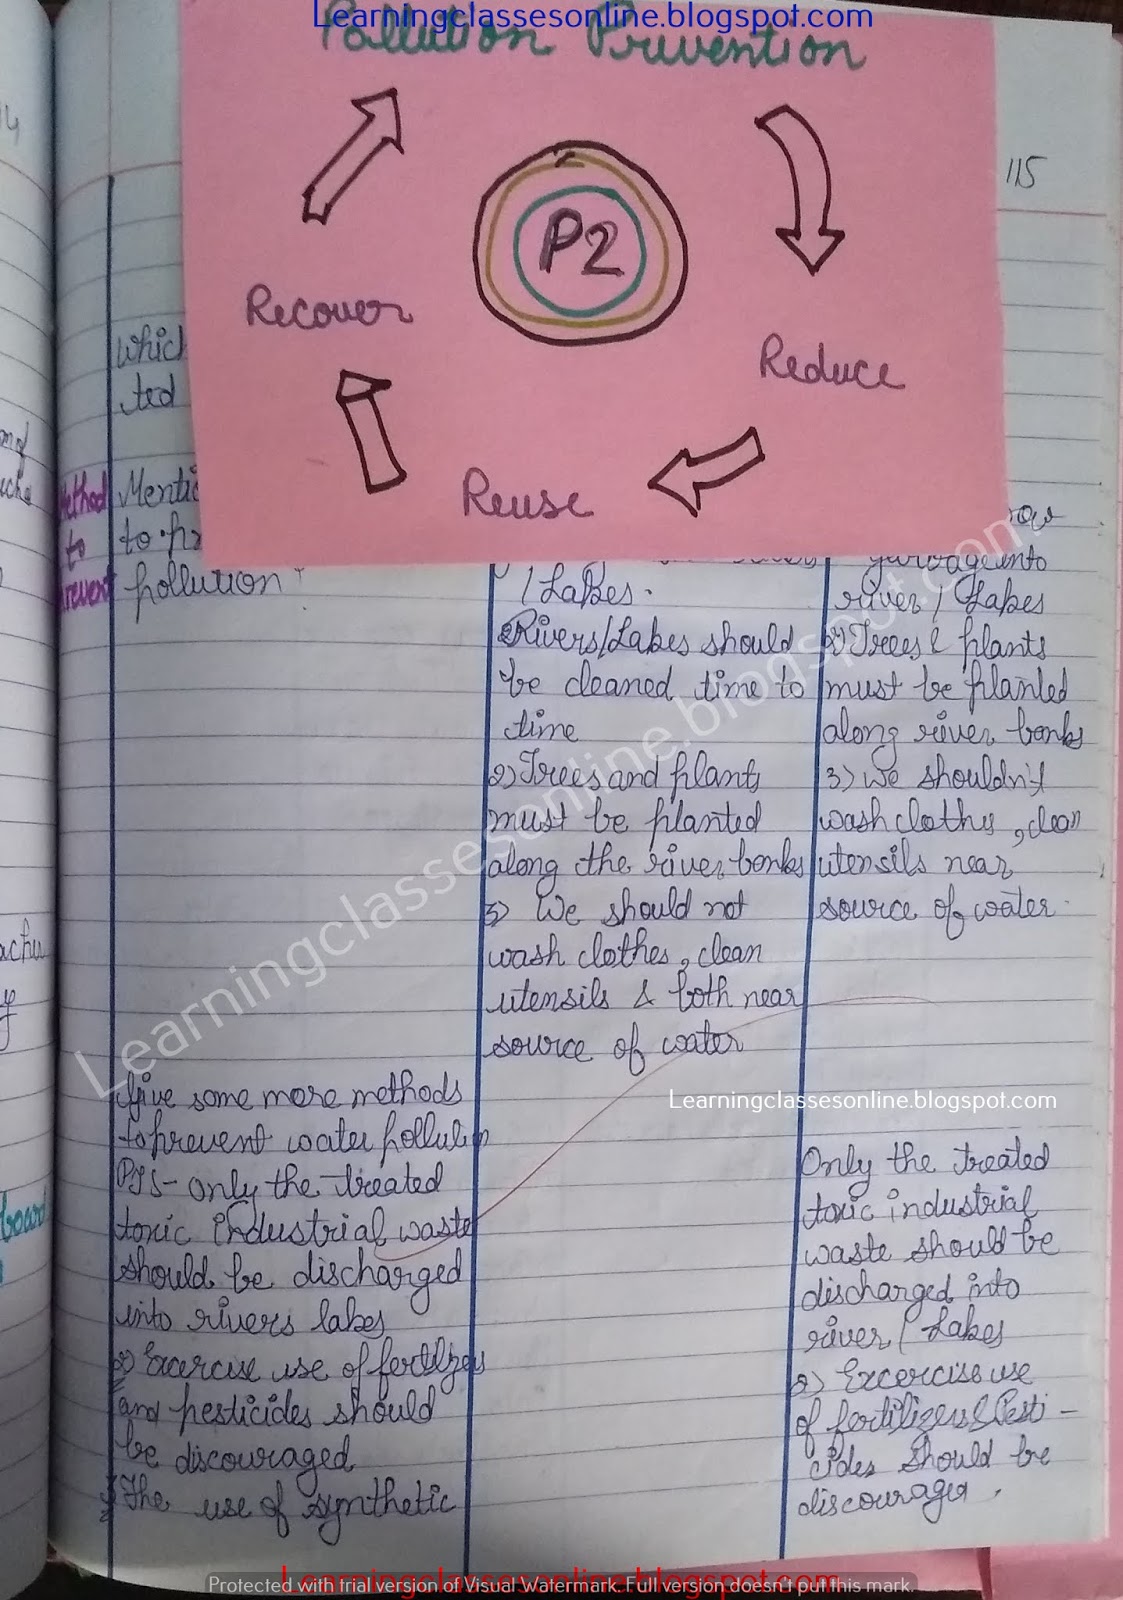 Learningclassesonline.blogspot.com
Pollution Prevention
P2
Recover
Reduce
Reuse
115
which
ted
Method
to
prevent
Mentio
to pr
pollution?
/ Lakes.
2) Rivers/Lakes should
be cleaned time to
time
2) Trees and plants
must be planted
along the river banks
3) We should not
wash clothes, clean
utensils & both near
source of water
row
garbage into
river / Lakes
2) Trees & plants
must be planted
along river banks
3) We shouldn't
wash clothes, clean
utensils near
source of water.
Give some more methods
to prevent water pollution
PTS- only the treated
toxic industrial waste
should be discharged
into rivers lakes
2) Excercise use of fertilizers
and pesticides should
be discouraged
3) The use of synthetic
Only the treated
toxic industrial
waste should be
discharged into
river / Lakes
2) Excercise use
of fertilizers & Pesti-
cides should be
discourager.
Learningclassesonline.blogspot.com
Learningclassesonline.blogspot.com
Learningclassesonline.blogspot.com
Protected with trial version of Visual Watermark. Full version doesn't put this mark.
board